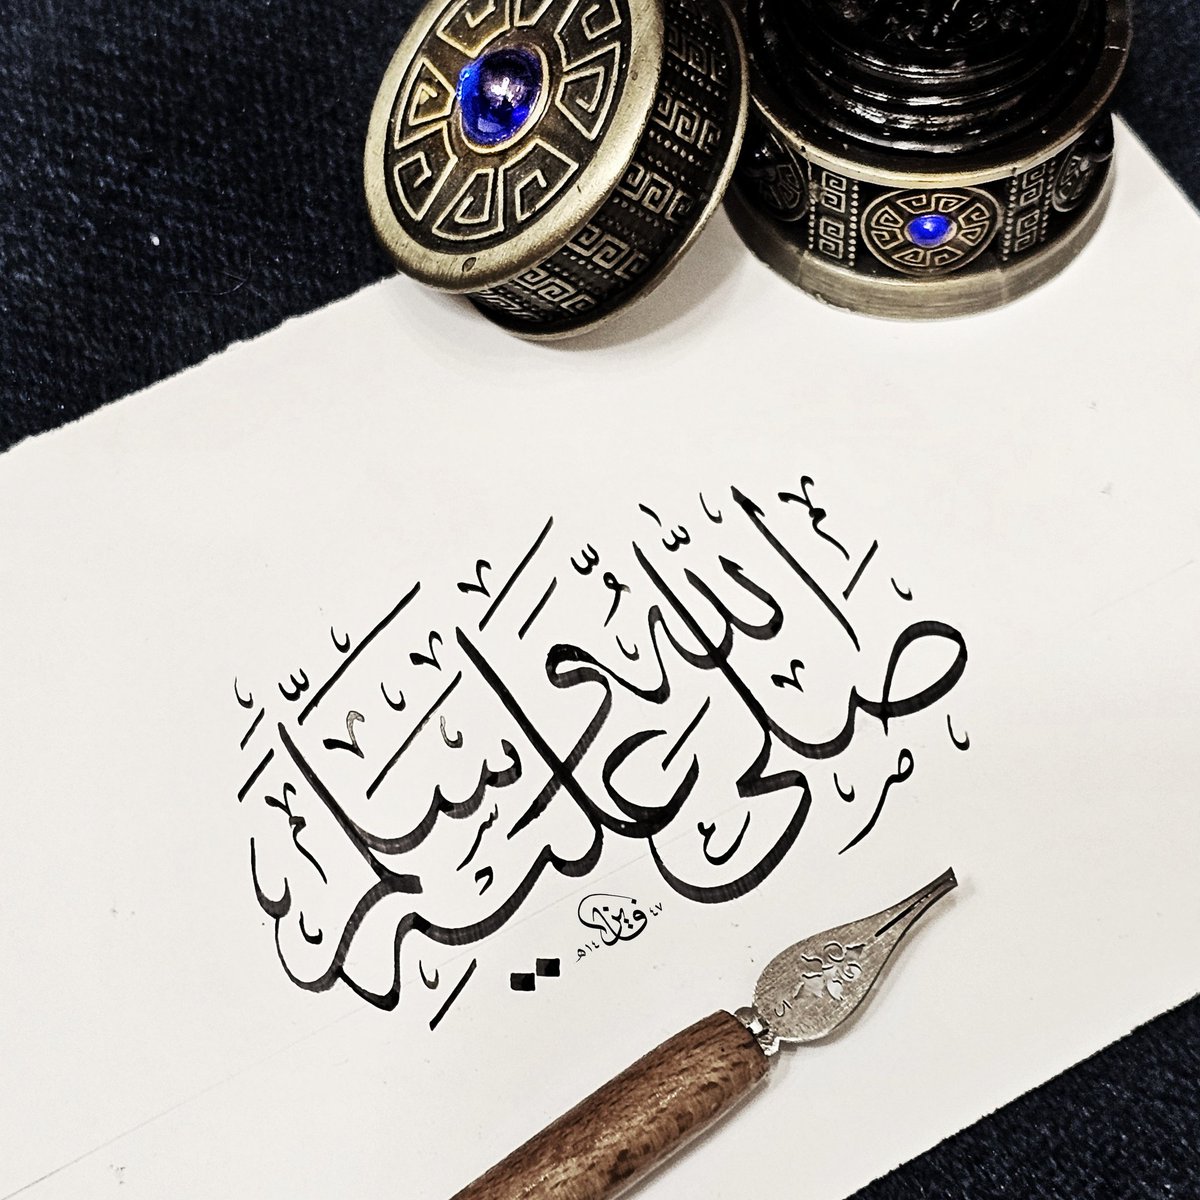 صَلَّى اللّٰهُ عَلَيْهِ وَسَلَّمَ
١٤٤٧هـ